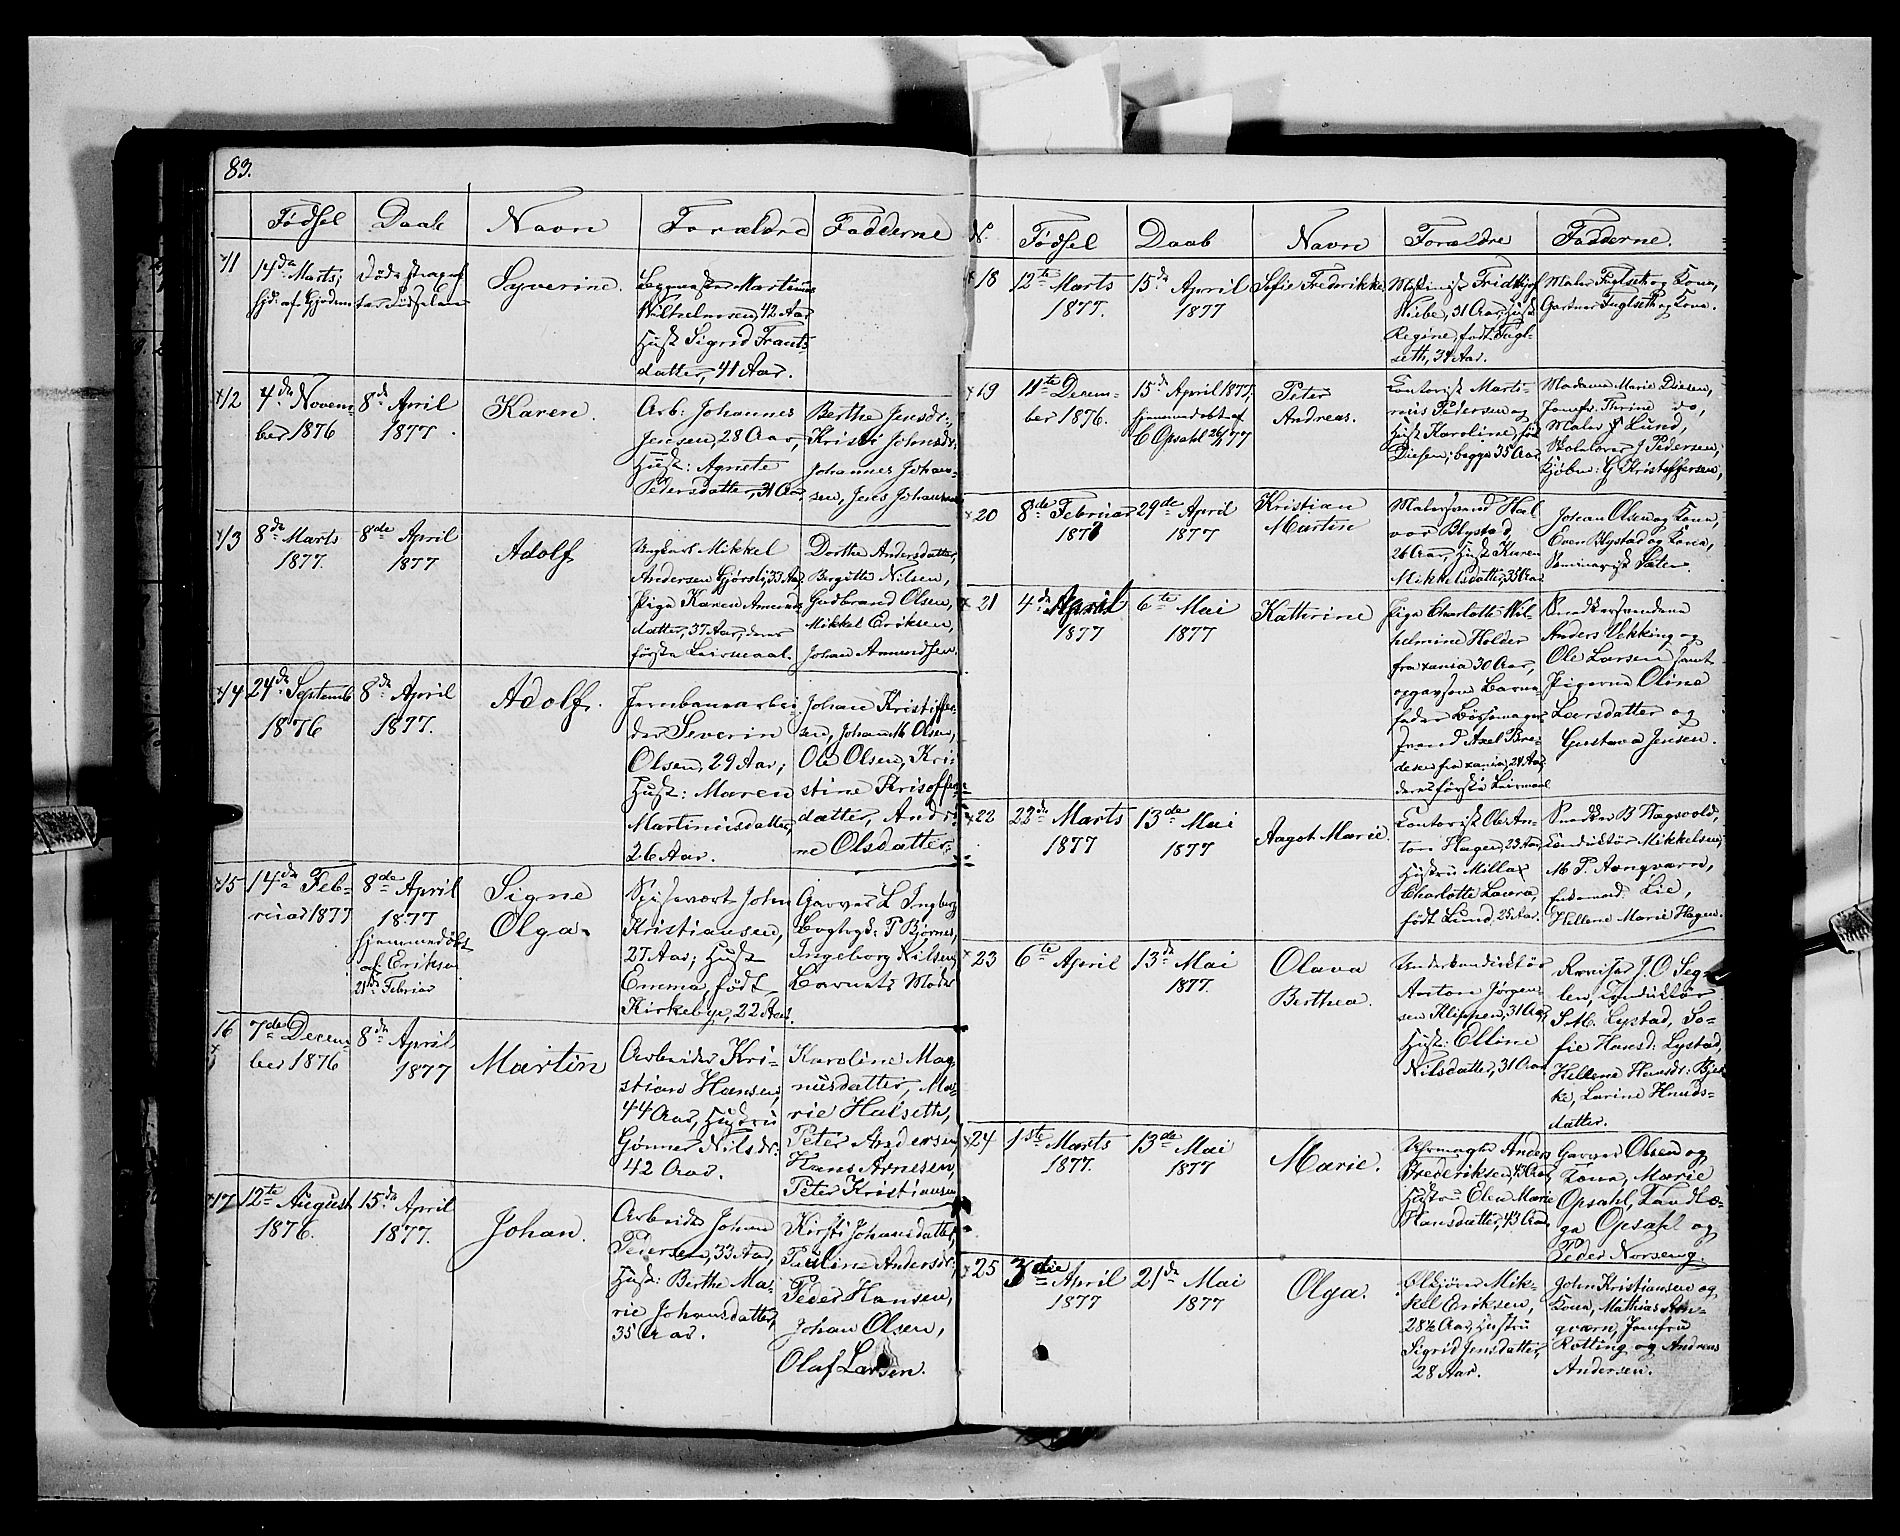 83.
Fødsel Daab Navn Forældre Fadderne
11
14de Marts;
hjd. af Gjordem
Døde strax ef
ter Fødselen
Syverine.
Martinus
Wilhelmsen, 42 Aar
Hust Sigrid Frants
datter, 41 Aar.
12
4de Novem
ber 1876
8de April
1877.
Karen.
Arb: Johannes
Jensen, 28 Aar,
Hust: Agnete
Pedersdatter, 31 Aar
Berthe Jensdr:,
Kristi Johnsdr:
Johannes Johan-
sen, Jens Johansen
13
8de Marts
1877.
8de April
1877
Adolf
Ungkarl Mikkel
Andersen Gjørsli, 33 Aar
Pige Karen Amunds
datter, 37 Aar, deres
første Leiermaal.
Dorthe Andersdatter,
Bergitte Nilsen,
Gudbrand Olsen,
Mikkel Eriksen,
Johan Amundsen.
14
24de Septemb
1876
8de April
1877.
Adolf.
Jernbanearbei-
der Severin
Olsen, 29 Aar;
Hust: Maren
Martinusdatter,
26 Aar.
Johan Kristoffer-
sen, Johan M Olsen,
Ole Olsen, Kri-
stine Krisoffer
datter, Andri-
ne Olsdatter,
15
14de Feb-
ruar 1877
8de April
1877
hjemmedøbt
af Eriksen
21de Februar
Signe
Olga.
Spisevært John
Kristiansen,
27 Aar; Hust
Emma, født
Kirkebye, 22 Aar.
Garver L Ingberg
Bogbyd: P Bjørnes,
Ingeborg Nilsen,
Barnets Moder
16
7de Decem-
ber 1876
8de April
1877
Martin
Arbeider Kri-
stian Hansen,
44 Aar, Hustru
Gønner Nilsdr:
42 Aar.
Karoline Mag
nusdatter, Ma-
rie Halseth,
Peter Andersen,
Hans Arnesen,
Peter Kristiansen
17
12te August
1876.
15de April
1877.
Johan.
Arbeider Johan
Pedersen, 33 Aar,
Hust: Berthe Ma-
rie Johansdatter,
35 Aar.
Kirsti Johansdatter,
Pauline Andersdr:,
Peder Hansen,
Johan Olsen,
Olaf Larsen.
N. Fødsel Daab Navn Forældre Fadderne.
18
12te Marts
1877.
15de April
1877
Sofie Fredrikke.
Maskinist Fridthjof
Wiebe, 31 Aar, Hust
Regine, født Fugl-
seth, 34 Aar.
Maler Fuglseth og Kone,
Gartner Fuglseth og Kone.
19
11te Decem-
ber 1876.
15de April 1877,
hjemmedøbt af
C Opsahl 26/1 77
Peter
Andreas.
Kontorist Marti-
nus Pedersen og
Hust Karoline, født
Diesen, begge 35 Aar
Madame Marie Diesen,
Jomfr. Thrine do,
Maler Lund,
Skolelærer J Pedersen,
Kjøbm: G Kristoffersen,
20
8de Februar
1877
29de April
1877
Kristian
Martin
Malersvend Hal
vor Blystad,
26 Aar, Hust Karen
Mikkelsdatter, 35 Aar
Johan Olsen og Kone,
Even Blystad og Kone,
Seminarist Sæter.
21
4de April
1877
6te Mai
1877
Kathrine
Pige Charlotte Wil-
helmine Holder
fra xania 30 Aar,
opgavsom Barne-
fader Børsemager
svend Axel Bre-
desen fra xania, 24 Aar,
deres første Leiermaal
Snedkersvendene
Anders Vekking og
Ole Larsen samt
Pigerne Oline
Larsdatter og
Gustava Jensen.
22
22de Marts
1877
13de Mai
1877
Aagot Marie.
Kontorist Ole An-
ton Hagen, 23 Aar
Hustru Milla
Charlotte Laura,
født Lund, 25 Aar.
Snedker B Nagsvold,
Konduktør Mikkelsen,
M P. Aangværn,
Lie,
Hellene Marie Hagen.
23
6te April
13de Mai
1877.
Olava
Berthea.
Underkonduktør
Anton Jørgen-
sen Klippen, 31 Aar
Hust: Elline
Nilsdatter, 31 Aar
Revisor J. O. Seg-
len, Konduktør
S M. Lystad, So-
fie Hansd: Lystad,
Hellene Hansdr: Bjer
ke, Larine Knuds-
datter.
24
1ste Marts
1877.
13de Mai
1877
Marie.
Uhrmager Anders
Frederiksen, 43 Aar,
Hustru Elen Marie
Hansdatter, 43 Aar,
Garver Olsen og
Kone, Marie
Opsahl, Tandlæ-
ge Opsahl og
Peder Norseng.
25
3die April
1877
21de Mai
1877
Olga.
Ølkjører Mik-
kel Eriksen,
28½ Aar, Hustru
Sigrid Jensdatter,
28 Aar.
John Kristiansen og
Kone, Mathias Aan-
gværn, Jomfru
Rotting og Andreas
Andersen.